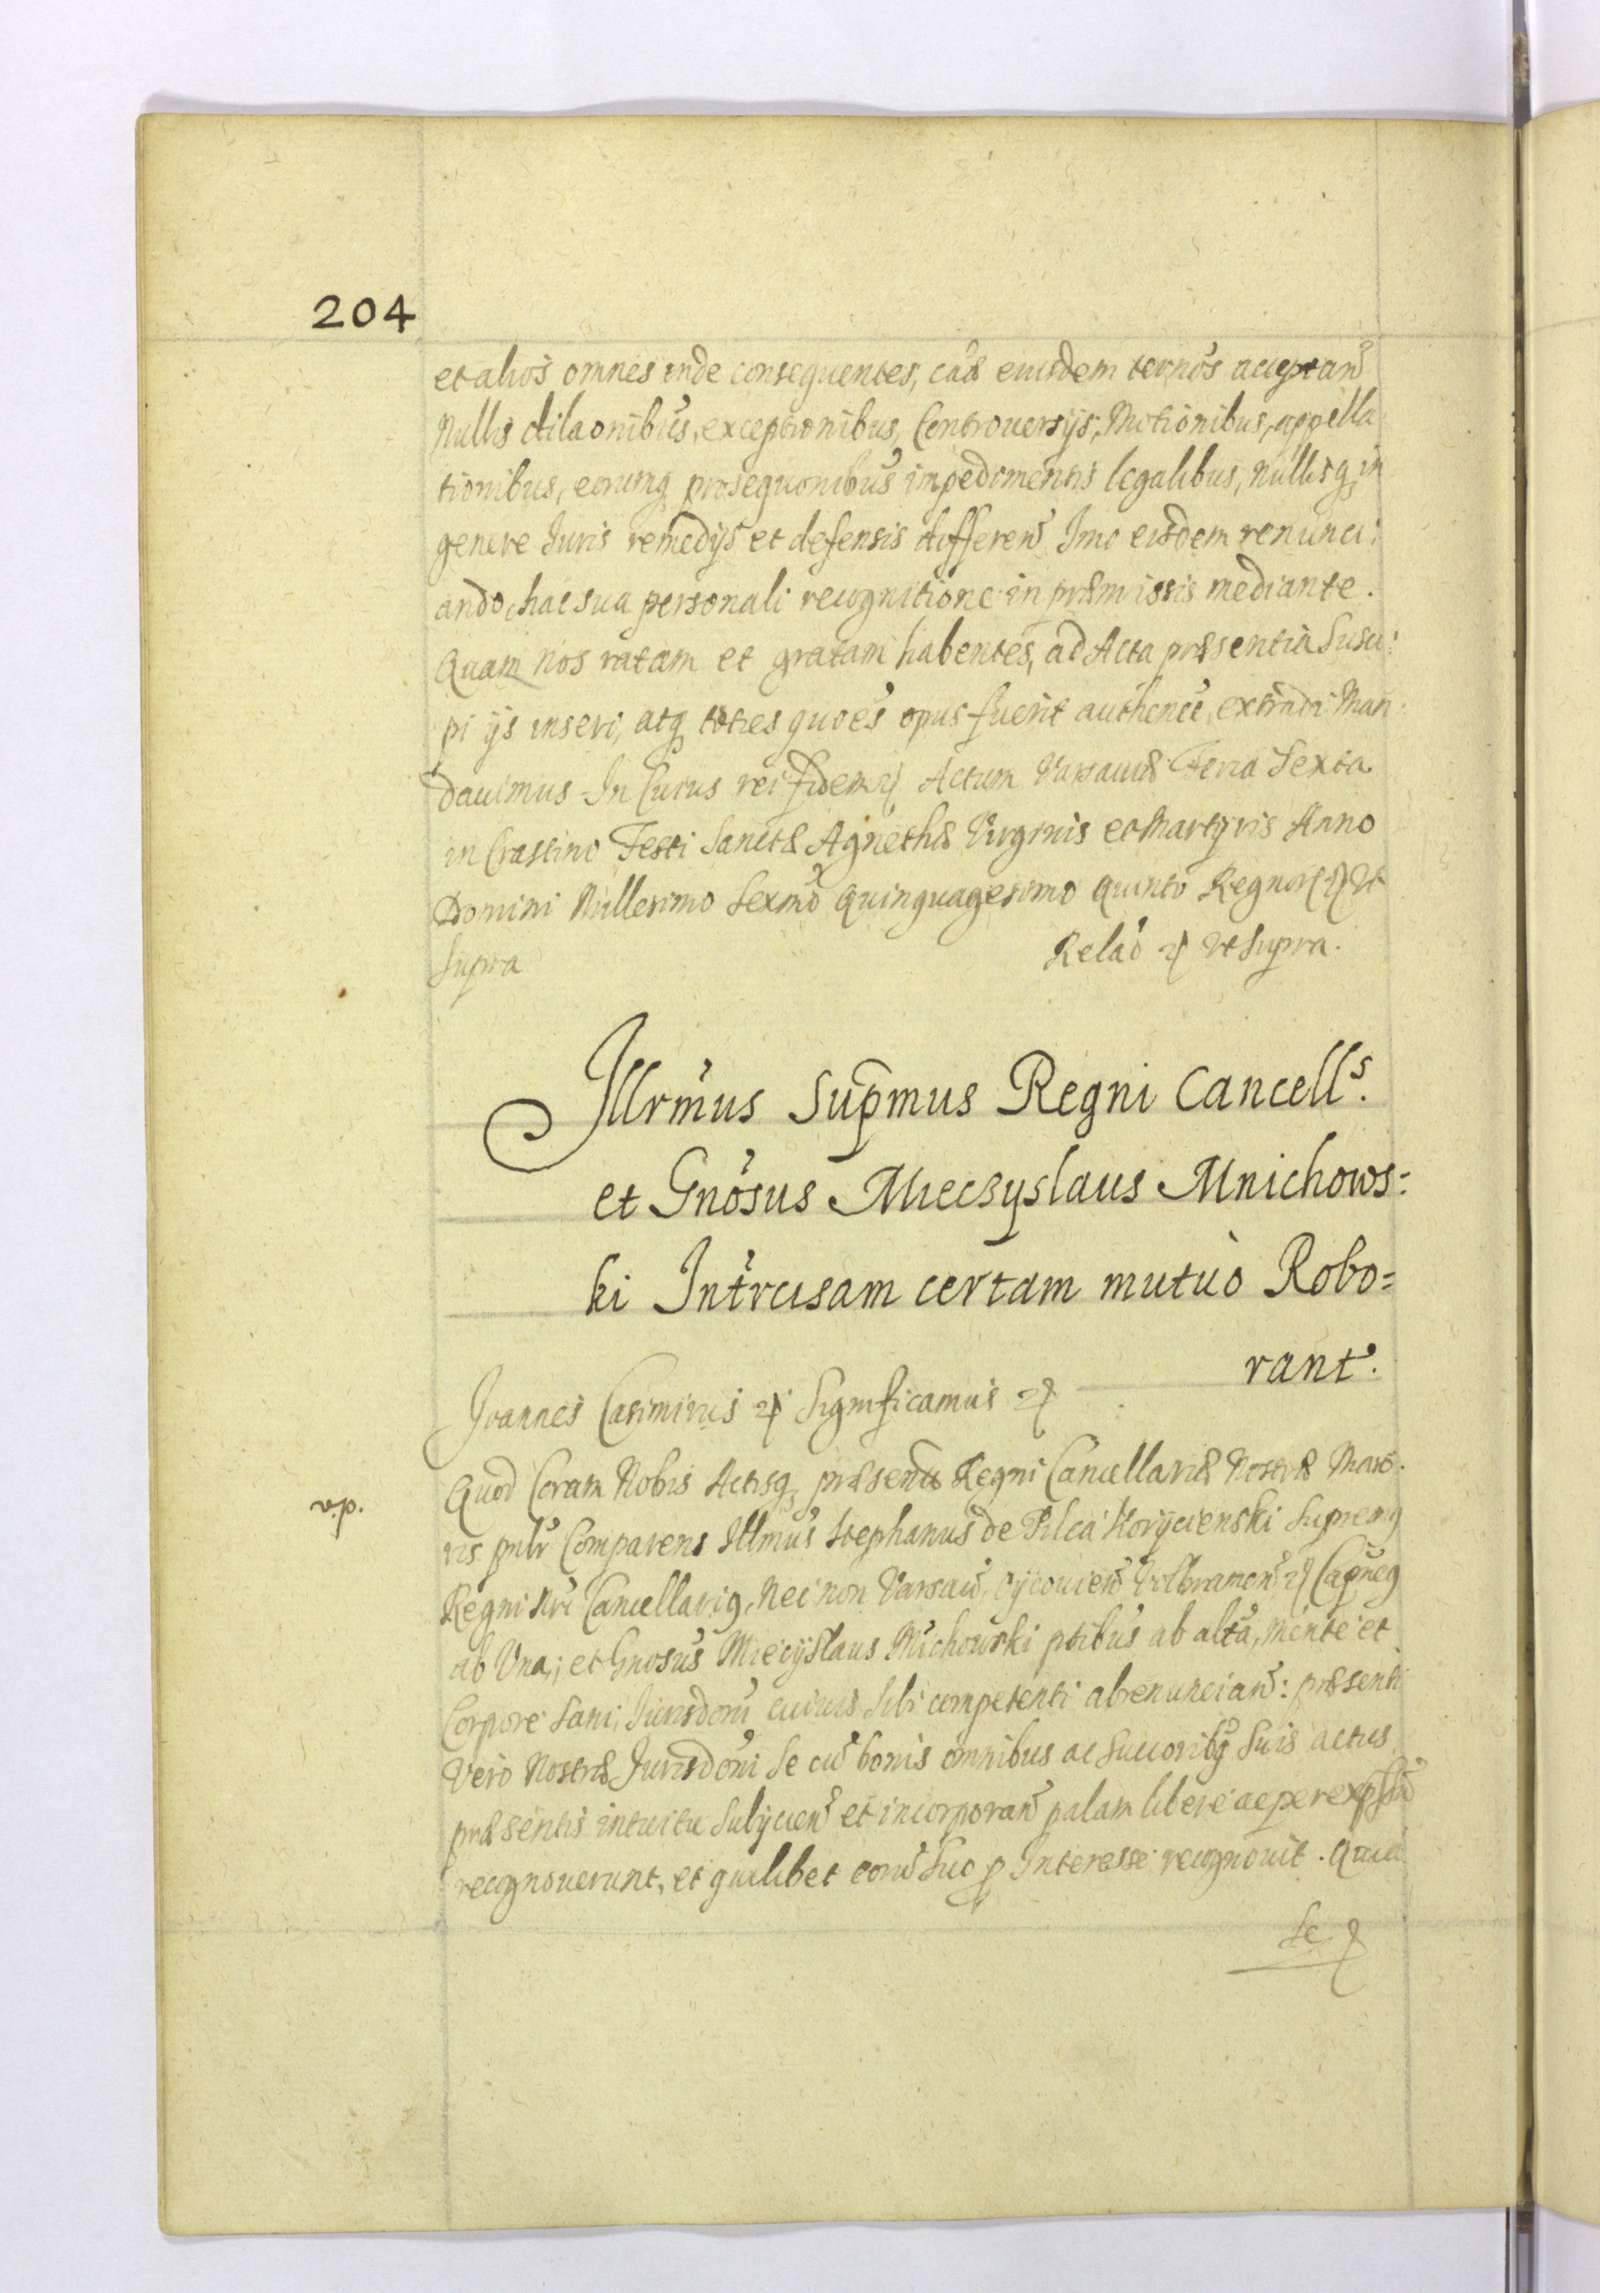 204
et alios omnes inde consequentes, câs eiusdem ternos acceptan̄
Nullis dilaonibus, exceptionibus, Controuersijs, Motionibus, appella
tionibus, eorumq prosequonibus impedimentis legalibus, nullisq in
genere Iuris remedijs et defensis differen̄ Imo eisdem renunci:
ando, hac sua personali recognitione in præmissis mediante.
Quam nos ratam et gratam habentes, ad Acta præsentia Susci:
pi ijs inseri, atq toties quoēs opus fuerit authence, extradi Man
dauimus In Cuius rei fidem Actum Varsauiæ Feria Sexta
in Crastino Festi Sanctæ Agnethæ Virginis et Martyris Anno
Domini Millesimo Sexmo Quinquagesimo Quinto Regnor Ut
Supra
Relaō Ut Supra.
Illrmus Supmus Regni Cancells.
et Gnosus Mieczyslaus Mnichows=
ki Intrcisam certam mutuò Robo=
rant.
Joannes Casimirus Significamus
v.p.
Quod Coram Nobis Actisq præsent Regni Cancellariæ Nostræ Maio
ris pnlr Comparens Illmus Stephanus de Pilca Korycienski Supremq
Regni Nri Cancellariq, Nec non Varsau, Oijcouien Wolbramen Capneq
ab Vna; et Gnosus Miecijslaus Mnichowski ptibus ab altā, mente et
Corpore Sani, Iurisdoni cuiuis Sibi competenti abrenuncian̄: præsenti
Vero Nostræ Jurisdoni Se cū bonis omnibus ac Succoribq Suis actus
præsentis intuitu Subijcien̄ et incorporan̄ palam libere ac per expssū
recognouerunt, et quilibet eorū Suo p Interesse recognouit. Quia
Se